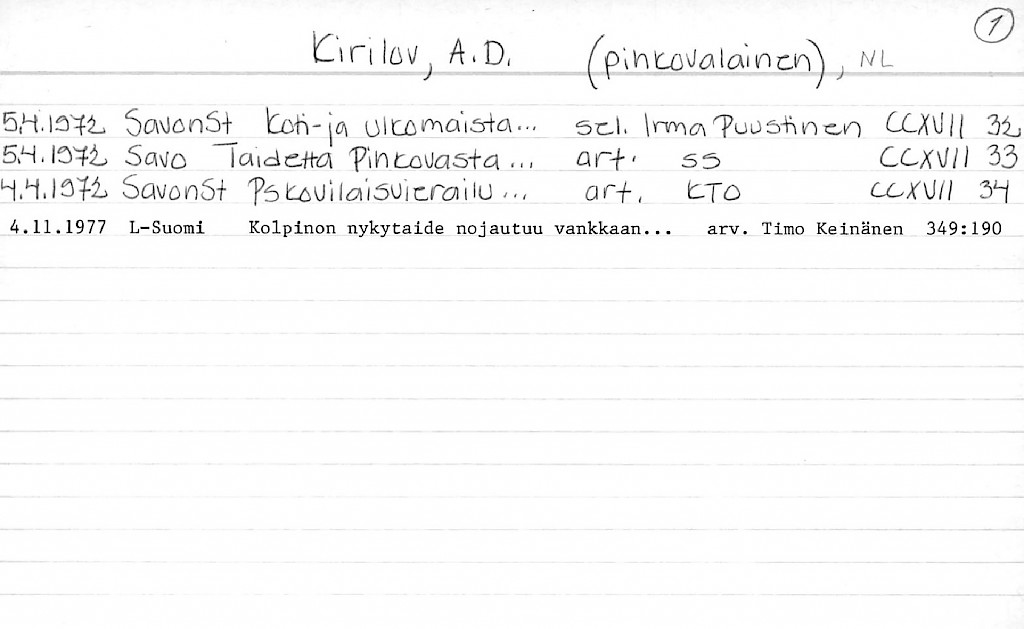 1
Kirilov, A.D. (pinkovalainen), NL
5.4.1972 SavonSt Koti-ja ulkomaista... sel. Irma Puustinen CCXVII 32
5.4.1972 Savo Taidetta Pinkovasta... art. ss CCXVII 33
4.4.1972 SavonSt Pskovilaisvierailu... art. KTO CCXVII 34
4.11.1977 L-Suomi Kolpinon nykytaide nojautuu vankkaan... arv. Timo Keinänen 349:190